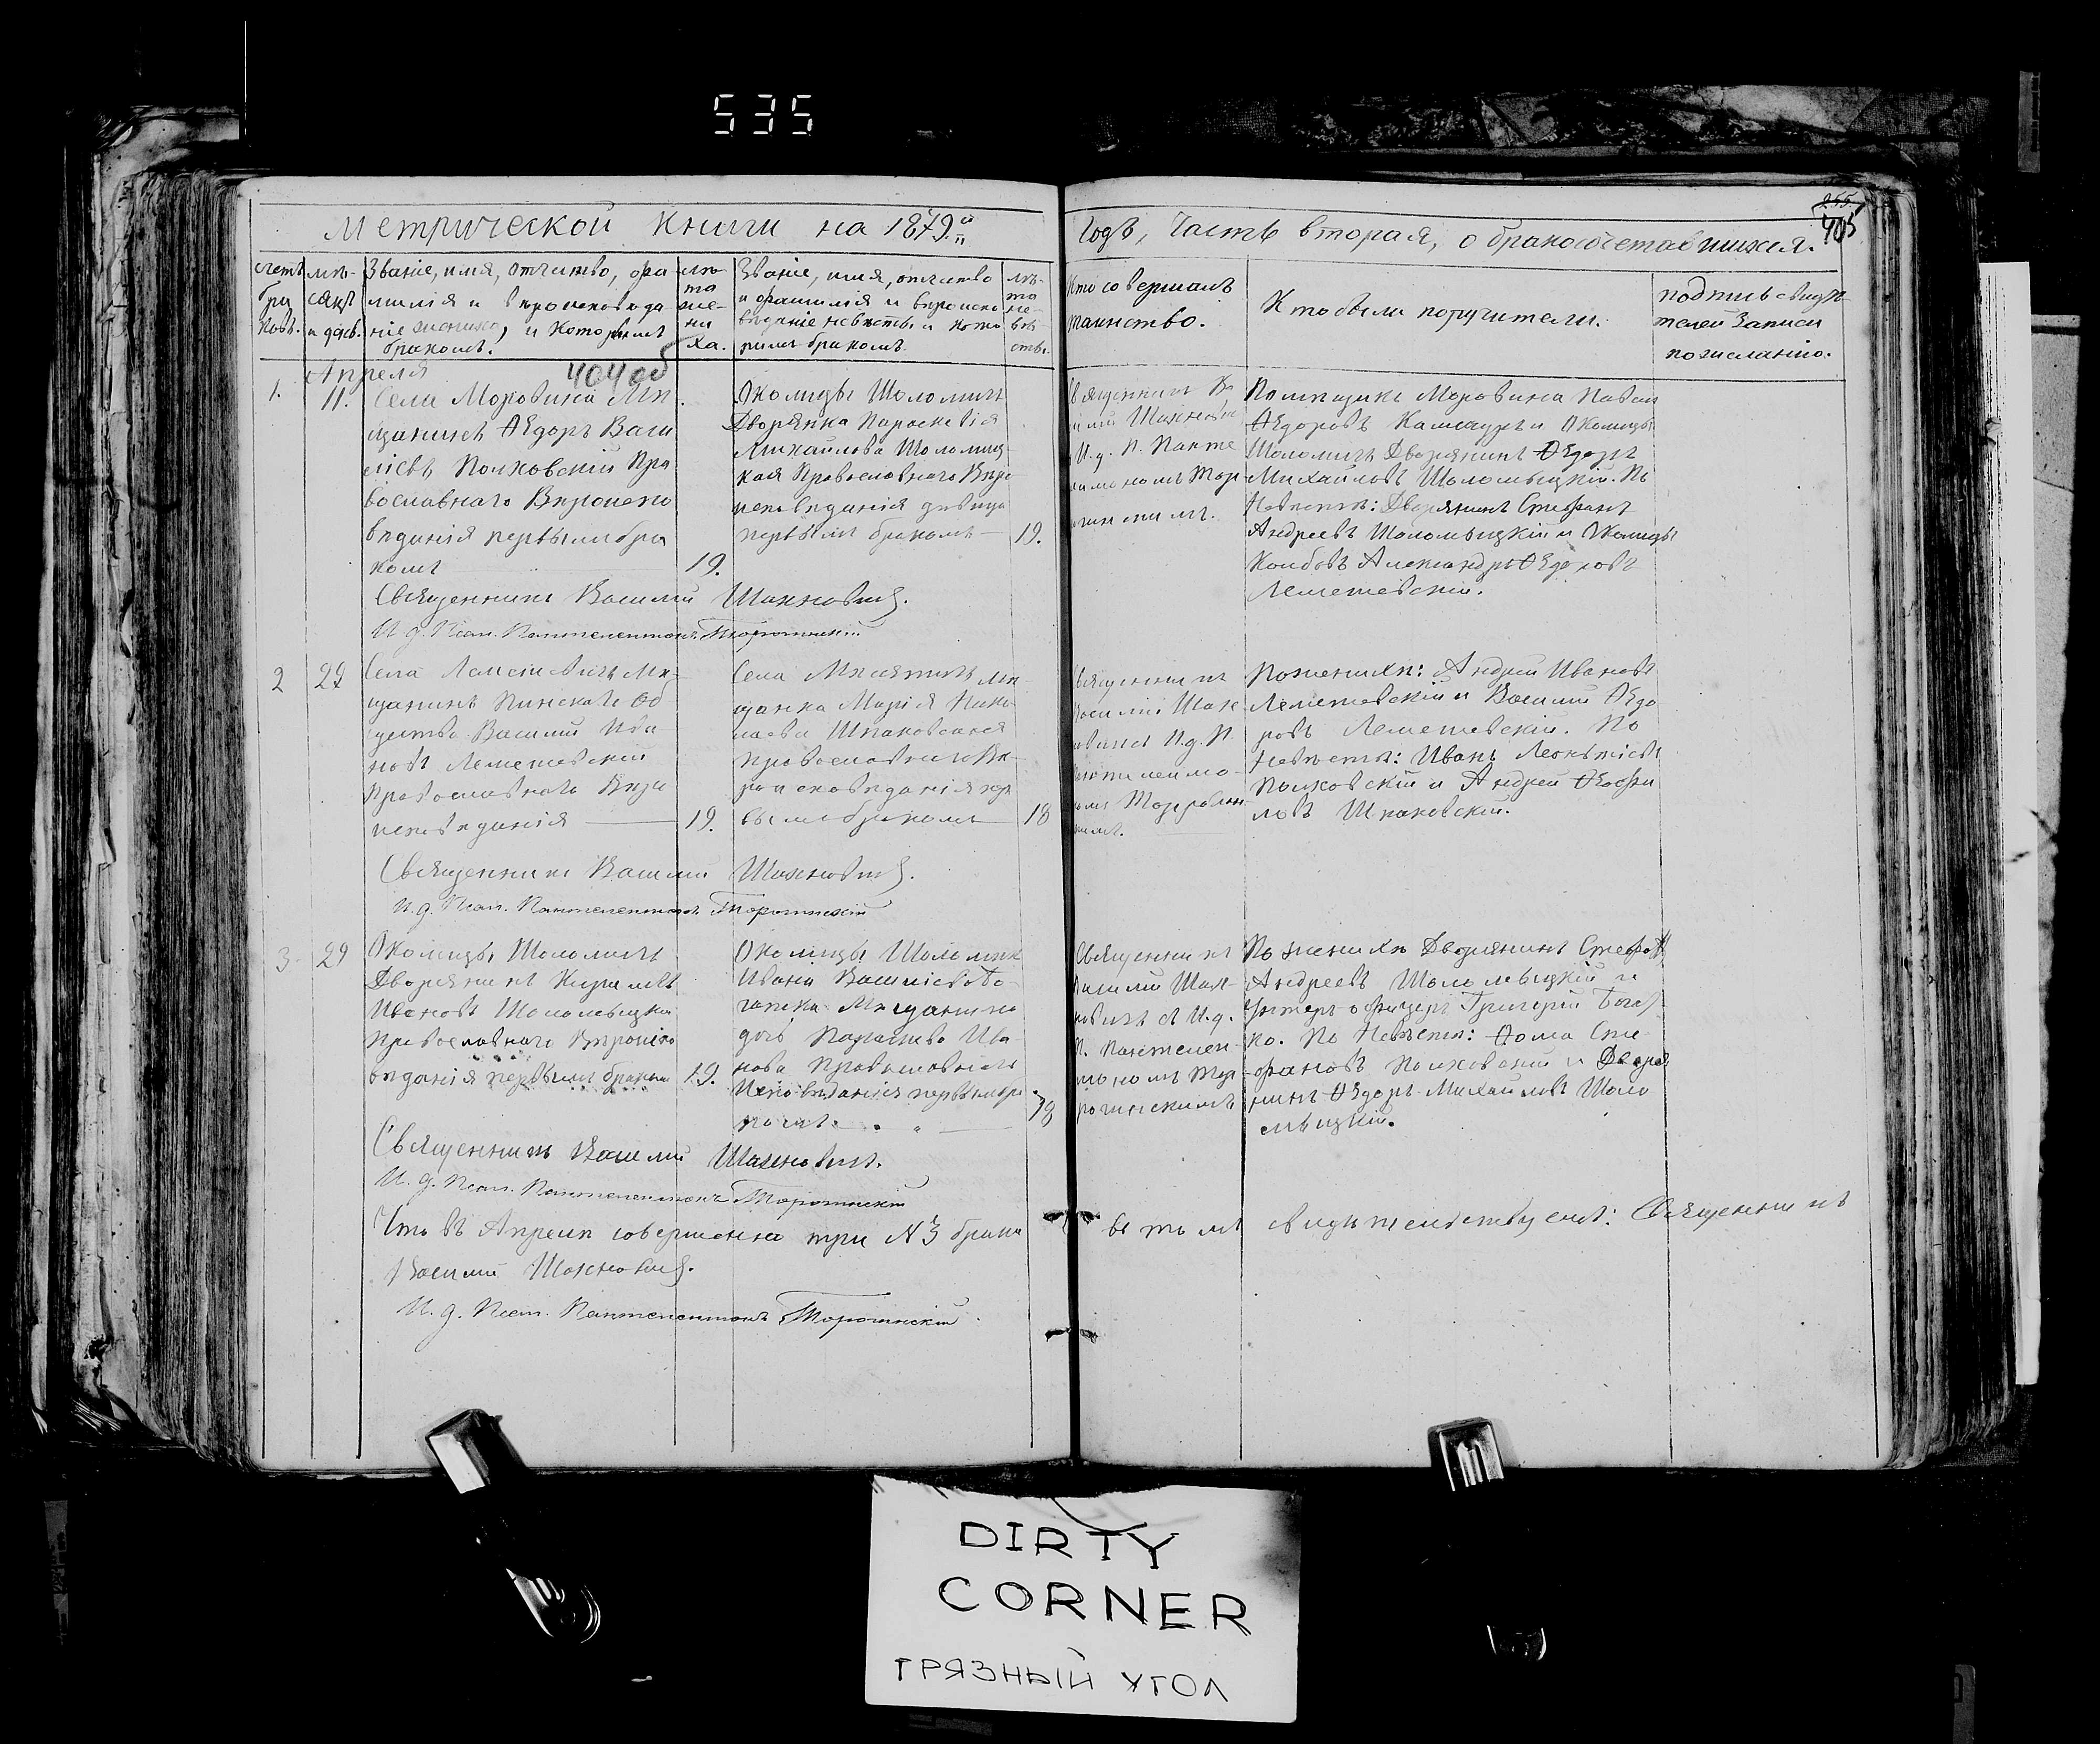 535
Метрической книги на 1879й
годъ, Часть вторая, о бракосочетавшихся.
255
405
счетъ браковъ.
мѣсяцъ и день.
Званіе, имя, отчество, фамилія и вѣроисповѣданіе жениха, и которымъ бракомъ.
лѣта жениха.
Званіе, имя, отчество и фамилія и вѣроисповѣданіе невѣсты и которымъ бракомъ.
лѣта невѣсты.
Кто совершалъ таинство.
Кто были поручители.
подпись свидѣтелей записи по желанію.
Апреля
404 об
1.
11.
Села Моровина Мѣ
щанинъ Ѳедоръ Васи
лiевъ Полховскій Пра
вославнаго Вѣроиспо
вѣданія первымъ бра
комъ
19.
Околицы Шоломичъ
Дворянка Параскевія
Михайлова Шоломиц
кая Православнаго Вѣро
исповѣданія дѣвица
первымъ бракомъ
19.
Священникъ Ва
И.д. П. Панте
Помѣщикъ Моровина Павелъ
Ѳедоровъ и Околицы
Шоломичъ Дворянинъ Ѳедоръ
Михайловъ Шоломыцкій. По
Невѣстѣ: Дворянинъ Стефанъ
Андреевъ Шоломыцкій и Околицы
Колбовъ Александръ Ѳедоровъ
Лемешевскій.
Священникъ Василій Шахновичъ.
И. д. Псал. Пантелеимонъ
2
29
Села мѣ-
щанинъ Пинскаго Об
щества Василій Ива
новъ Лемешевскій
Православнаго Вѣро
исповѣданія
19.
Села мѣ-
щанка Марія Нико
лаева Шпаковская
Православнаго Вѣ-
роисповѣданія пер
вымъ бракомъ
18
Священникъ
Василій Шах
новичъ И.д. П.
По жениху: Андрей Ивановъ
Лемешевскій и Василій Ѳедо
ровъ Лемешевскій. По
Невѣстѣ: Иванъ Леонтіевъ
Полховскій и Андрей Ѳеофи
ловъ Шпаковскій.
Священникъ Василій Шахновичъ.
И. д. Псал. Пантелеимонъ
3
29
Околицы Шоломичъ
Дворянинъ Кириллъ
Ивановъ Шоломыцкій
Православнаго Вѣроиспо
вѣданія первымъ бракомъ
19.
Околицы Шоломичъ
Ивана Василіева
Мѣщанина
дочь Ива-
нова Православнаго
Исповѣданія первымъ бра
комъ
18
Священникъ
Василій Шах-
новичъ съ И.д.
П. Пантелеи-
мономъ
По жениху Дворянинъ Стефанъ
Андреевъ Шоломыцкій и
Унтеръ-офицеръ Григорій
По Невѣстѣ: Ѳома Сте
фановъ Полховскій и Дворя
нинъ Ѳедоръ Михайловъ Шоло
мыцкій.
Священникъ Василій Шахновичъ.
И. д. Псал. Пантелеимонъ
Что въ Апрелѣ совершенно три №3 брака
въ томъ свидѣтельствуемъ: Священникъ
Василій Шахновичъ.
И. д. Псал. Пантелеимонъ
DIRTY
CORNER
ГРЯЗНЫЙ УГОЛ